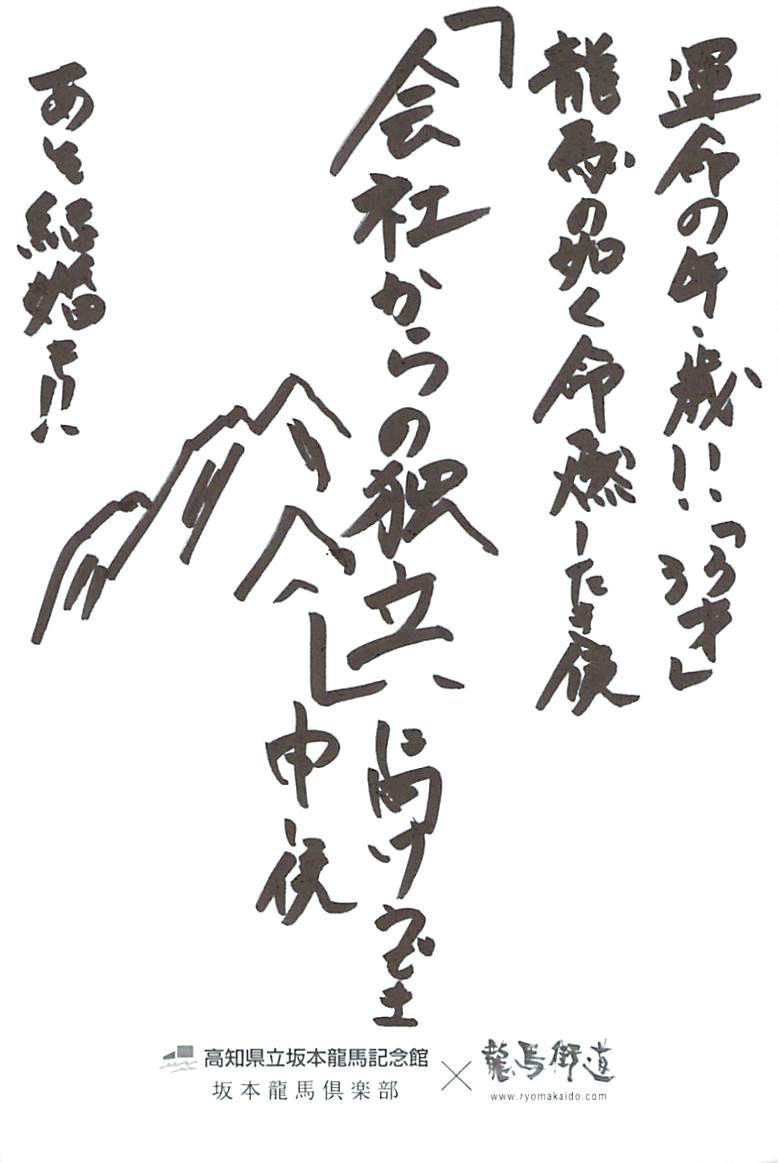 運命の年・歳!!「33才」
龍馬の如く命燃したき候
「会社からの独立
に向け
」申し候
あと結婚も!!
高知県立坂本龍馬記念館
坂本龍馬倶楽部
×
龍馬街道
www.ryomakaido.com